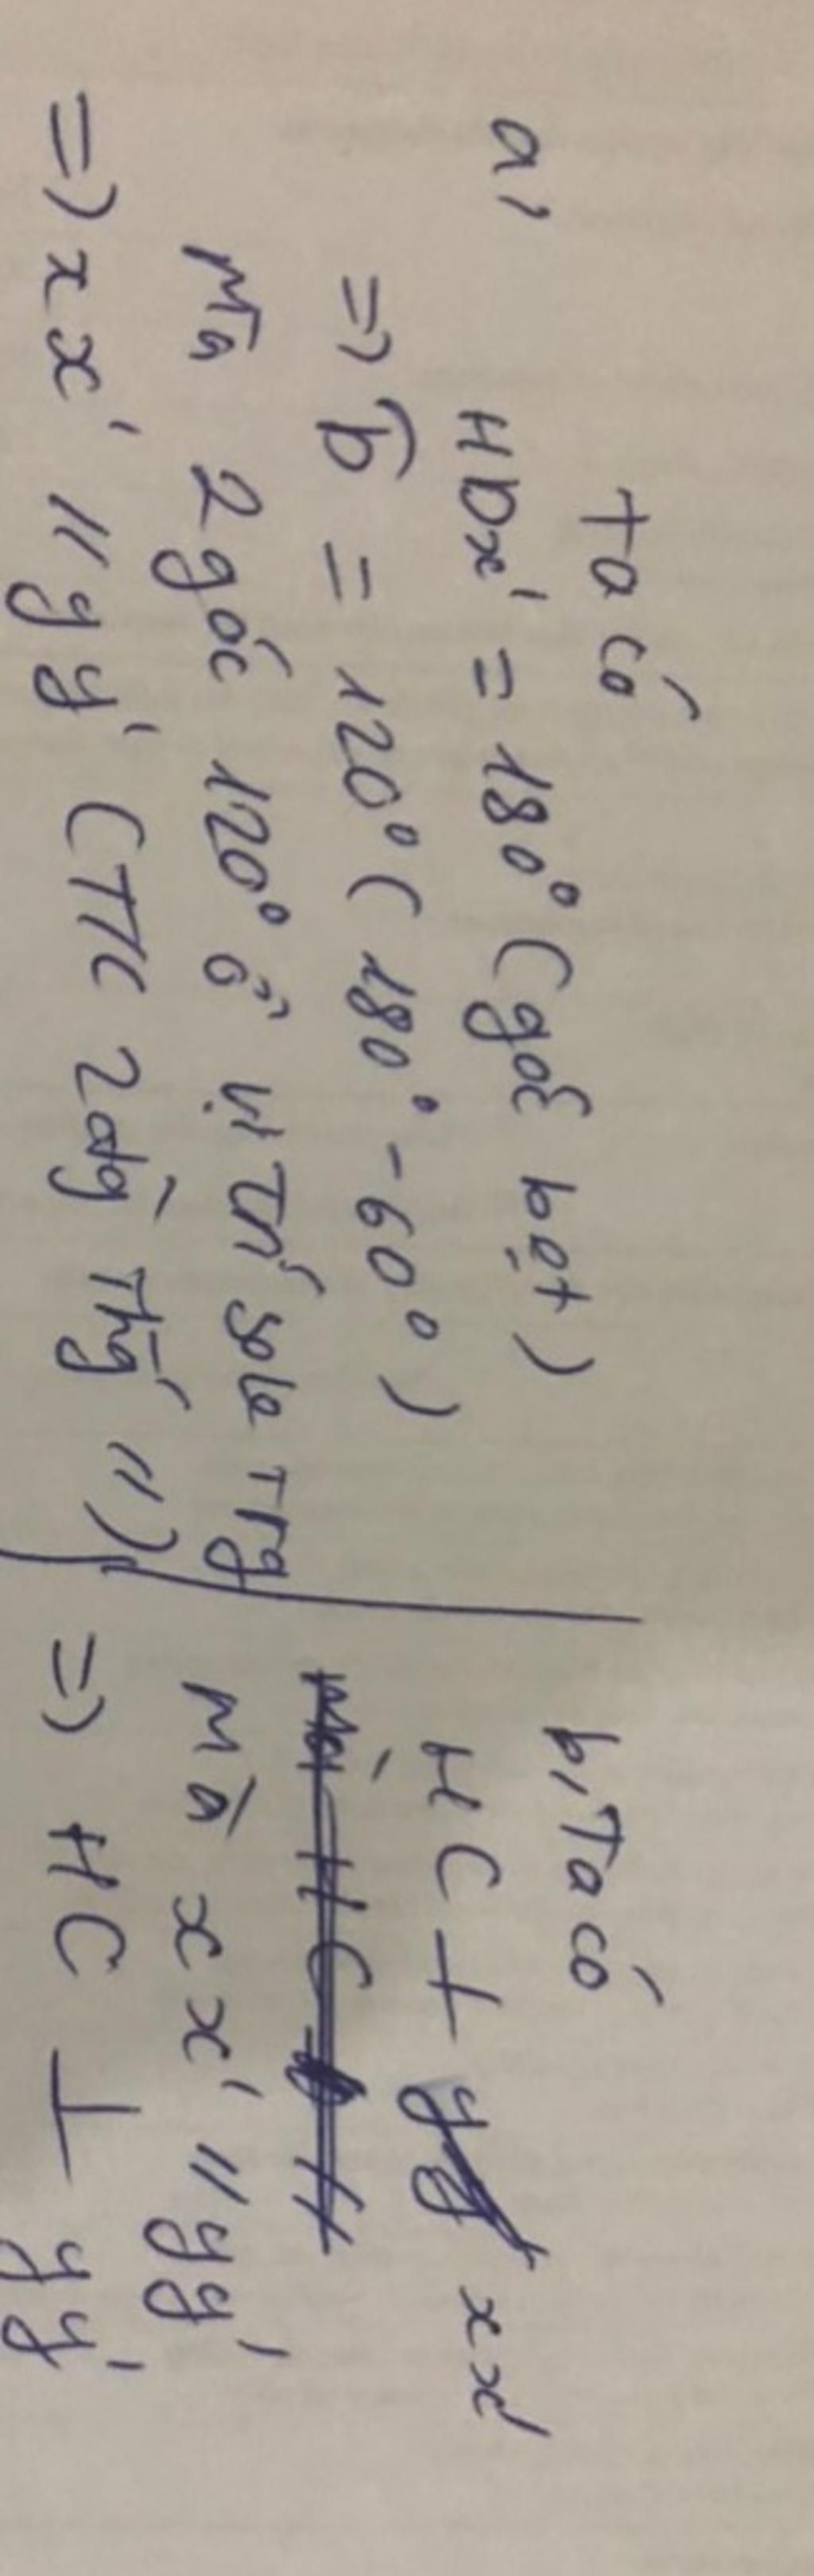 a,
Ta có
HDx' = 180° (góc bẹt)
=> D̂ = 120° (180° - 60°)
Mà 2 góc 120° ở vị trí sole trg
=> xx' // yy' (T/c 2 đg thg //)
b, Ta có
HC ⊥ xx'
Mà xx' // yy'
=> HC ⊥ yy'